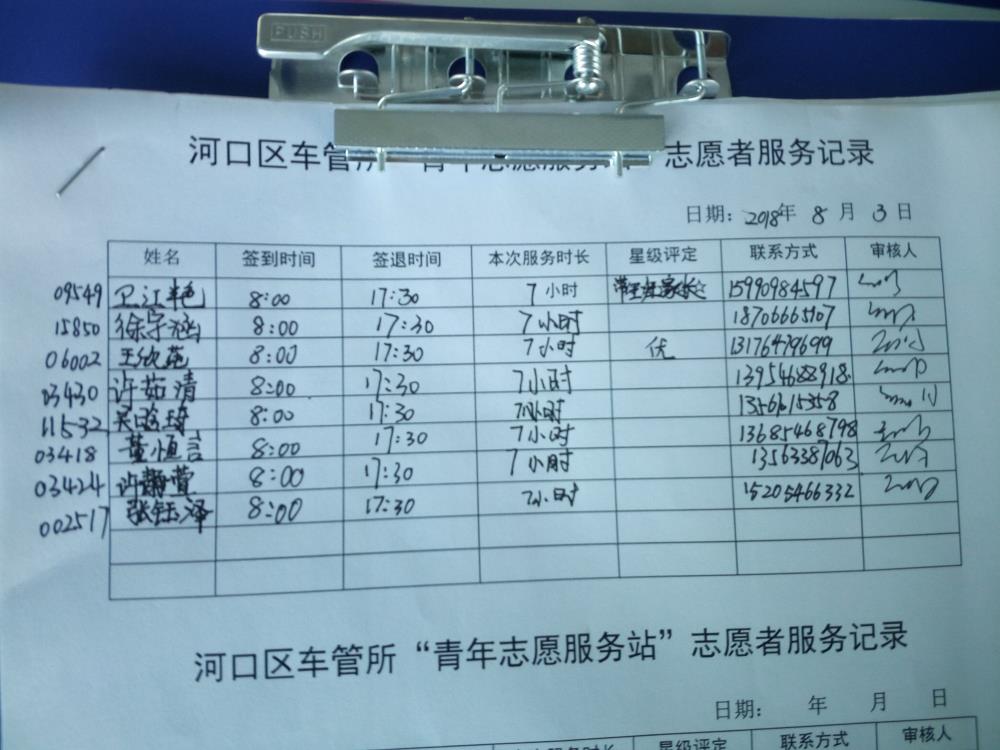 PUSH
河口区车管所“青年志愿服务站”志愿者服务记录
日期：2018年 8 月 3 日
姓名 签到时间 签退时间 本次服务时长 星级评定 联系方式 审核人
09549 8:00 17:30 7小时 15990984597
15850 徐宇涵 8:00 17:30 7小时 18706665107
06002 王欣苑 8:00 17:30 7小时 优 13176479699
03430 许茹清 8:00 17:30 7小时 13954688918
11532 8:00 17:30 7小时
03418 董恒言 8:00 17:30 7小时 13685468798
03424 许 萱 8:00 17:30 7小时 13563387063
002517 张钰泽 8:00 17:30 7小时 15205466332
河口区车管所“青年志愿服务站”志愿者服务记录
日期： 年 月 日
本次服务时长 星级评定 联系方式 审核人